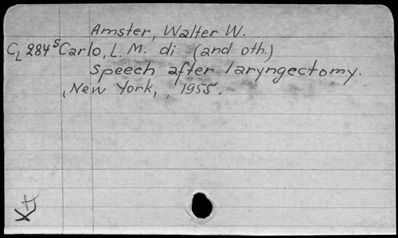 Amster, Walter W.
CL 284 s Carlo, L. M. di (and oth.)
Speech after laryngectomy.
, New York, , 1955.